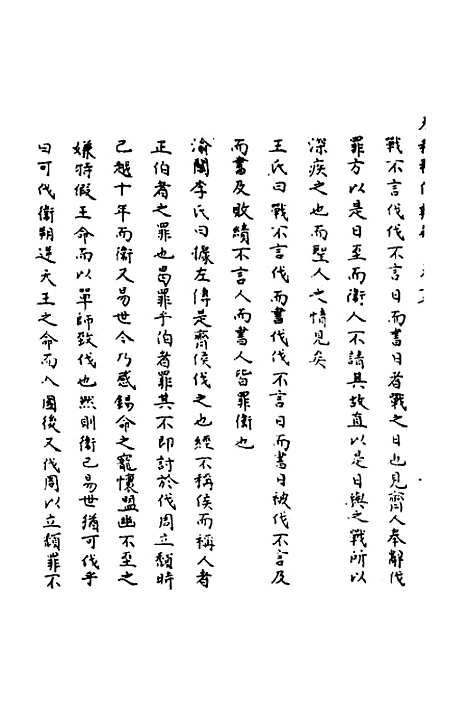 戰不言伐伐不言日而書日者戰之日也見齊人奉辭伐
罪方以是日至而衞人不請其故直以是日與之戰所以
深疾之也而聖人之情見矣
王氏曰戰不言伐而書伐伐不言日而書日被伐不言及
而書及敗績不言人而書人皆罪衞也
渝關李氏曰據左傳是齊侯伐之也經不稱侯而稱人者
正伯者之罪也曷罪乎伯者罪其不即討於伐周立頽時
已越十年而衞又易世今乃感錫命之寵懷盟幽不至之
嫌特假王命而以單師致伐也然則衞已易世猶可伐乎
曰可伐衞朔逆天王之命而入國後又伐周以立頽罪不